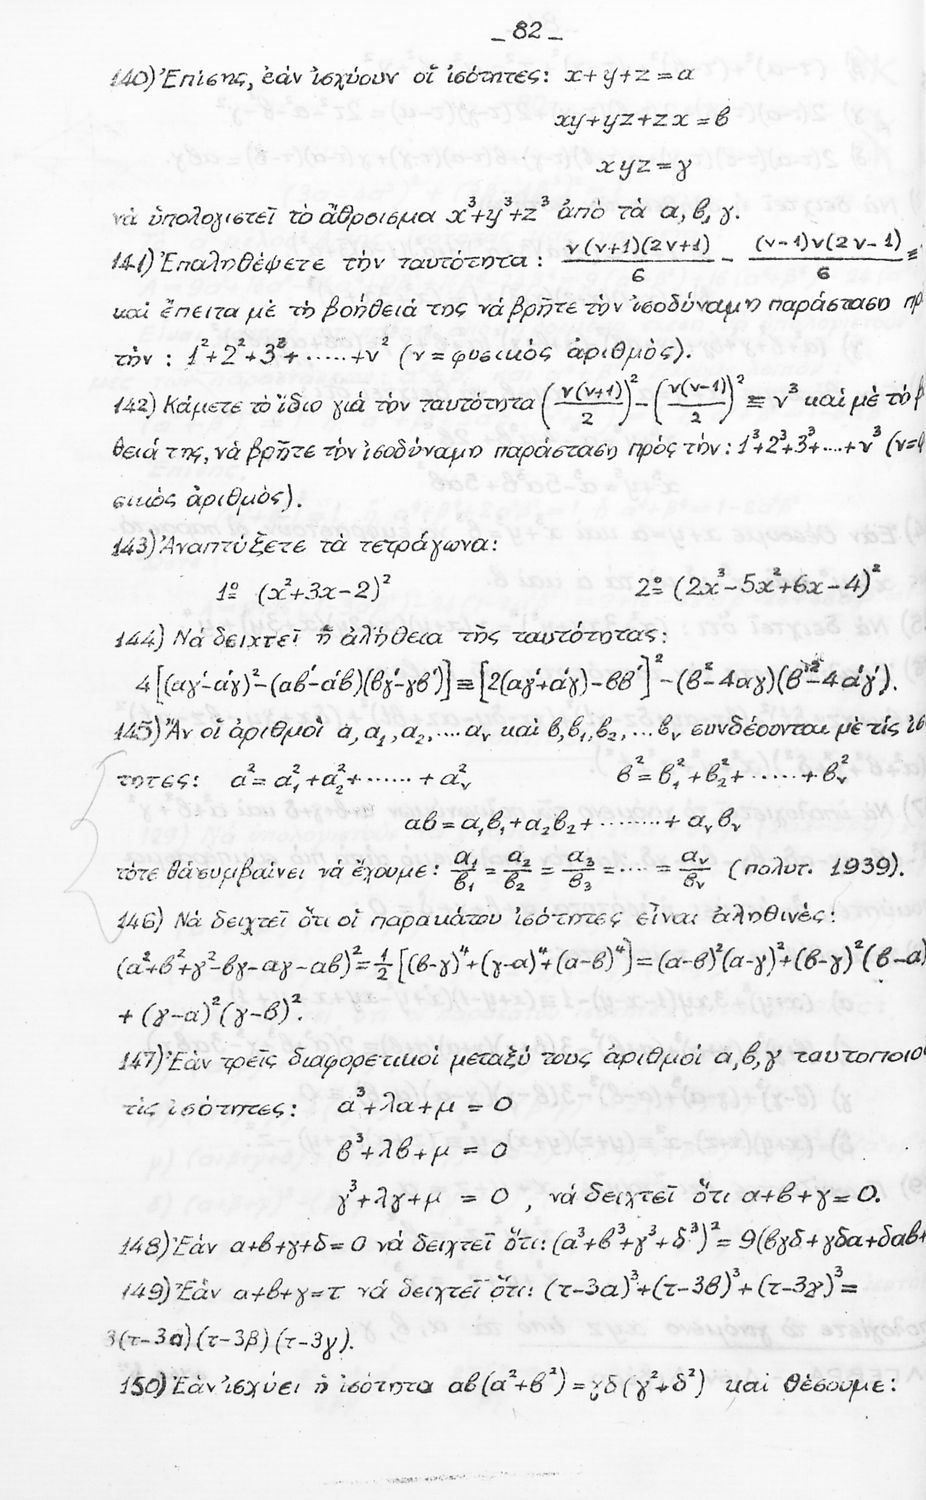 _ 82 _
140) Ἐπίσης, ἐάν ἰσχύουν οἱ ἰσότητες: x+y+z=α
xy+yz+zx=β
xyz=γ
νά ὑπολογιστεῖ τὸ ἄθροισμα x³+y³+z³ ἀπὸ τὰ α, β, γ.
141) Ἐπαληθέψετε τὴν ταυτότητα: ν(ν+1)(2ν+1)/6 - (ν-1)ν(2ν-1)/6 ≡
καὶ ἔπειτα μὲ τὴ βοήθειά της νά βρῆτε τὴν ἰσοδύναμη παράσταση πρ
τὴν: 1²+2²+3²+......+ν² (ν=φυσικὸς ἀριθμὸς).
142) Κάμετε τὸ ἴδιο γιά τὸν ταυτότητα (ν(ν+1)/2)²-(ν(ν-1)/2)² ≡ ν³ καὶ μὲ τὸ β
θειά της, νὰ βρῆτε τὴν ἰσοδύναμη παράσταση πρὸς τὴν: 1³+2³+3³+....+ν³ (ν=φ
σικὸς ἀριθμὸς).
143) Ἀναπτύξετε τὰ τετράγωνα:
1º (x²+3x-2)² 2º (2x³-5x²+6x-4)²
144) Νὰ δειχτεῖ ἡ ἀλήθεια τῆς ταυτότητας:
4[(αγ΄-α΄γ)²-(αβ΄-α΄β)(βγ΄-γβ΄)]≡[2(αγ΄+α΄γ)-ββ΄]²-(β²-4αγ)(β΄²-4α΄γ΄).
145) Ἂν οἱ ἀριθμοὶ α, α₁, α₂,....αν καὶ β, β₁, β₂,...βν συνδέονται μὲ τὶς ἰσ
τητες: α²=α₁²+α₂²+......+αν² β²=β₁²+β₂²+.....+βν²
αβ=α₁β₁+α₂β₂+........+ανβν
τότε θά συμβαίνει νά ἔχουμε: α₁/β₁=α₂/β₂=α₃/β₃=....=αν/βν (πολυτ. 1939).
146) Νὰ δειχτεῖ ὅτι οἱ παρακάτου ἰσότητες εἶναι ἀληθινὲς:
(α²+β²+γ²-βγ-αγ-αβ)²=1/2[(β-γ)⁴+(γ-α)⁴+(α-β)⁴]=(α-β)²(α-γ)²+(β-γ)²(β-α)
+(γ-α)²(γ-β)².
147) Ἐὰν τρεῖς διαφορετικοὶ μεταξύ τους ἀριθμοὶ α, β, γ ταυτοποιο
τὶς ἰσότητες: α³+λα+μ=0
β³+λβ+μ=0
γ³+λγ+μ=0, νά δειχτεῖ ὅτι α+β+γ=0.
148) Ἐὰν α+β+γ+δ=0 νὰ δειχτεῖ ὅτι: (α³+β³+γ³+δ³)²=9(βγδ+γδα+δαβ+
149) Ἐὰν α+β+γ=τ νὰ δειχτεῖ ὅτι: (τ-3α)³+(τ-3β)³+(τ-3γ)³=
3(τ-3α)(τ-3β)(τ-3γ).
150) Ἐὰν ἰσχύει ἡ ἰσότητα αβ(α²+β²)=γδ(γ²+δ²) καὶ θέσουμε: